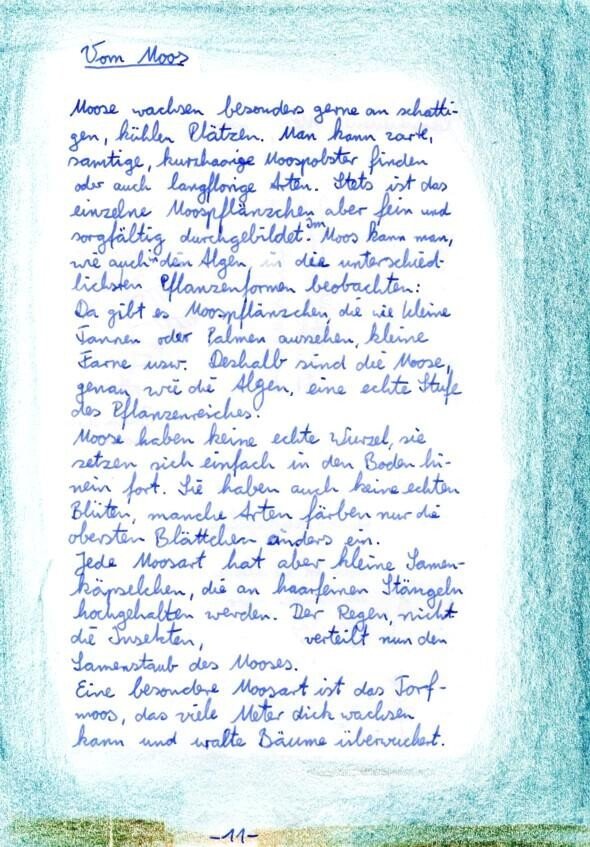 Vom Moos
Moose wachsen besonders gerne an schatti-
gen, kühlen Plätzen. Man kann zarte,
samtige, kurzhaarige Moospolster finden
oder auch langflorige Arten. Stets ist das
einzelne Moospflänzchen aber fein und
sorgfältig durchgebildet. Im Moos kann man,
wie auch in den Algen, die unterschied-
lichsten Pflanzenformen beobachten:
Da gibt es Moospflänzchen, die wie kleine
Tannen oder Palmen aussehen, kleine
Farne usw. Deshalb sind die Moose,
genau wie die Algen, eine echte Stufe
des Pflanzenreiches.
Moose haben keine echte Wurzel, sie
setzen sich einfach in den Boden hi-
nein fort. Sie haben auch keine echten
Blüten, manche Arten färben nur die
obersten Blättchen anders ein.
Jede Moosart hat aber kleine Samen-
käpselchen, die an haarfeinen Stängeln
hochgehalten werden. Der Regen, nicht
die Insekten, verteilt nun den
Samenstaub des Mooses.
Eine besondere Moosart ist das Torf-
moos, das viele Meter dick wachsen
kann und uralte Bäume überwuchert.
-11-